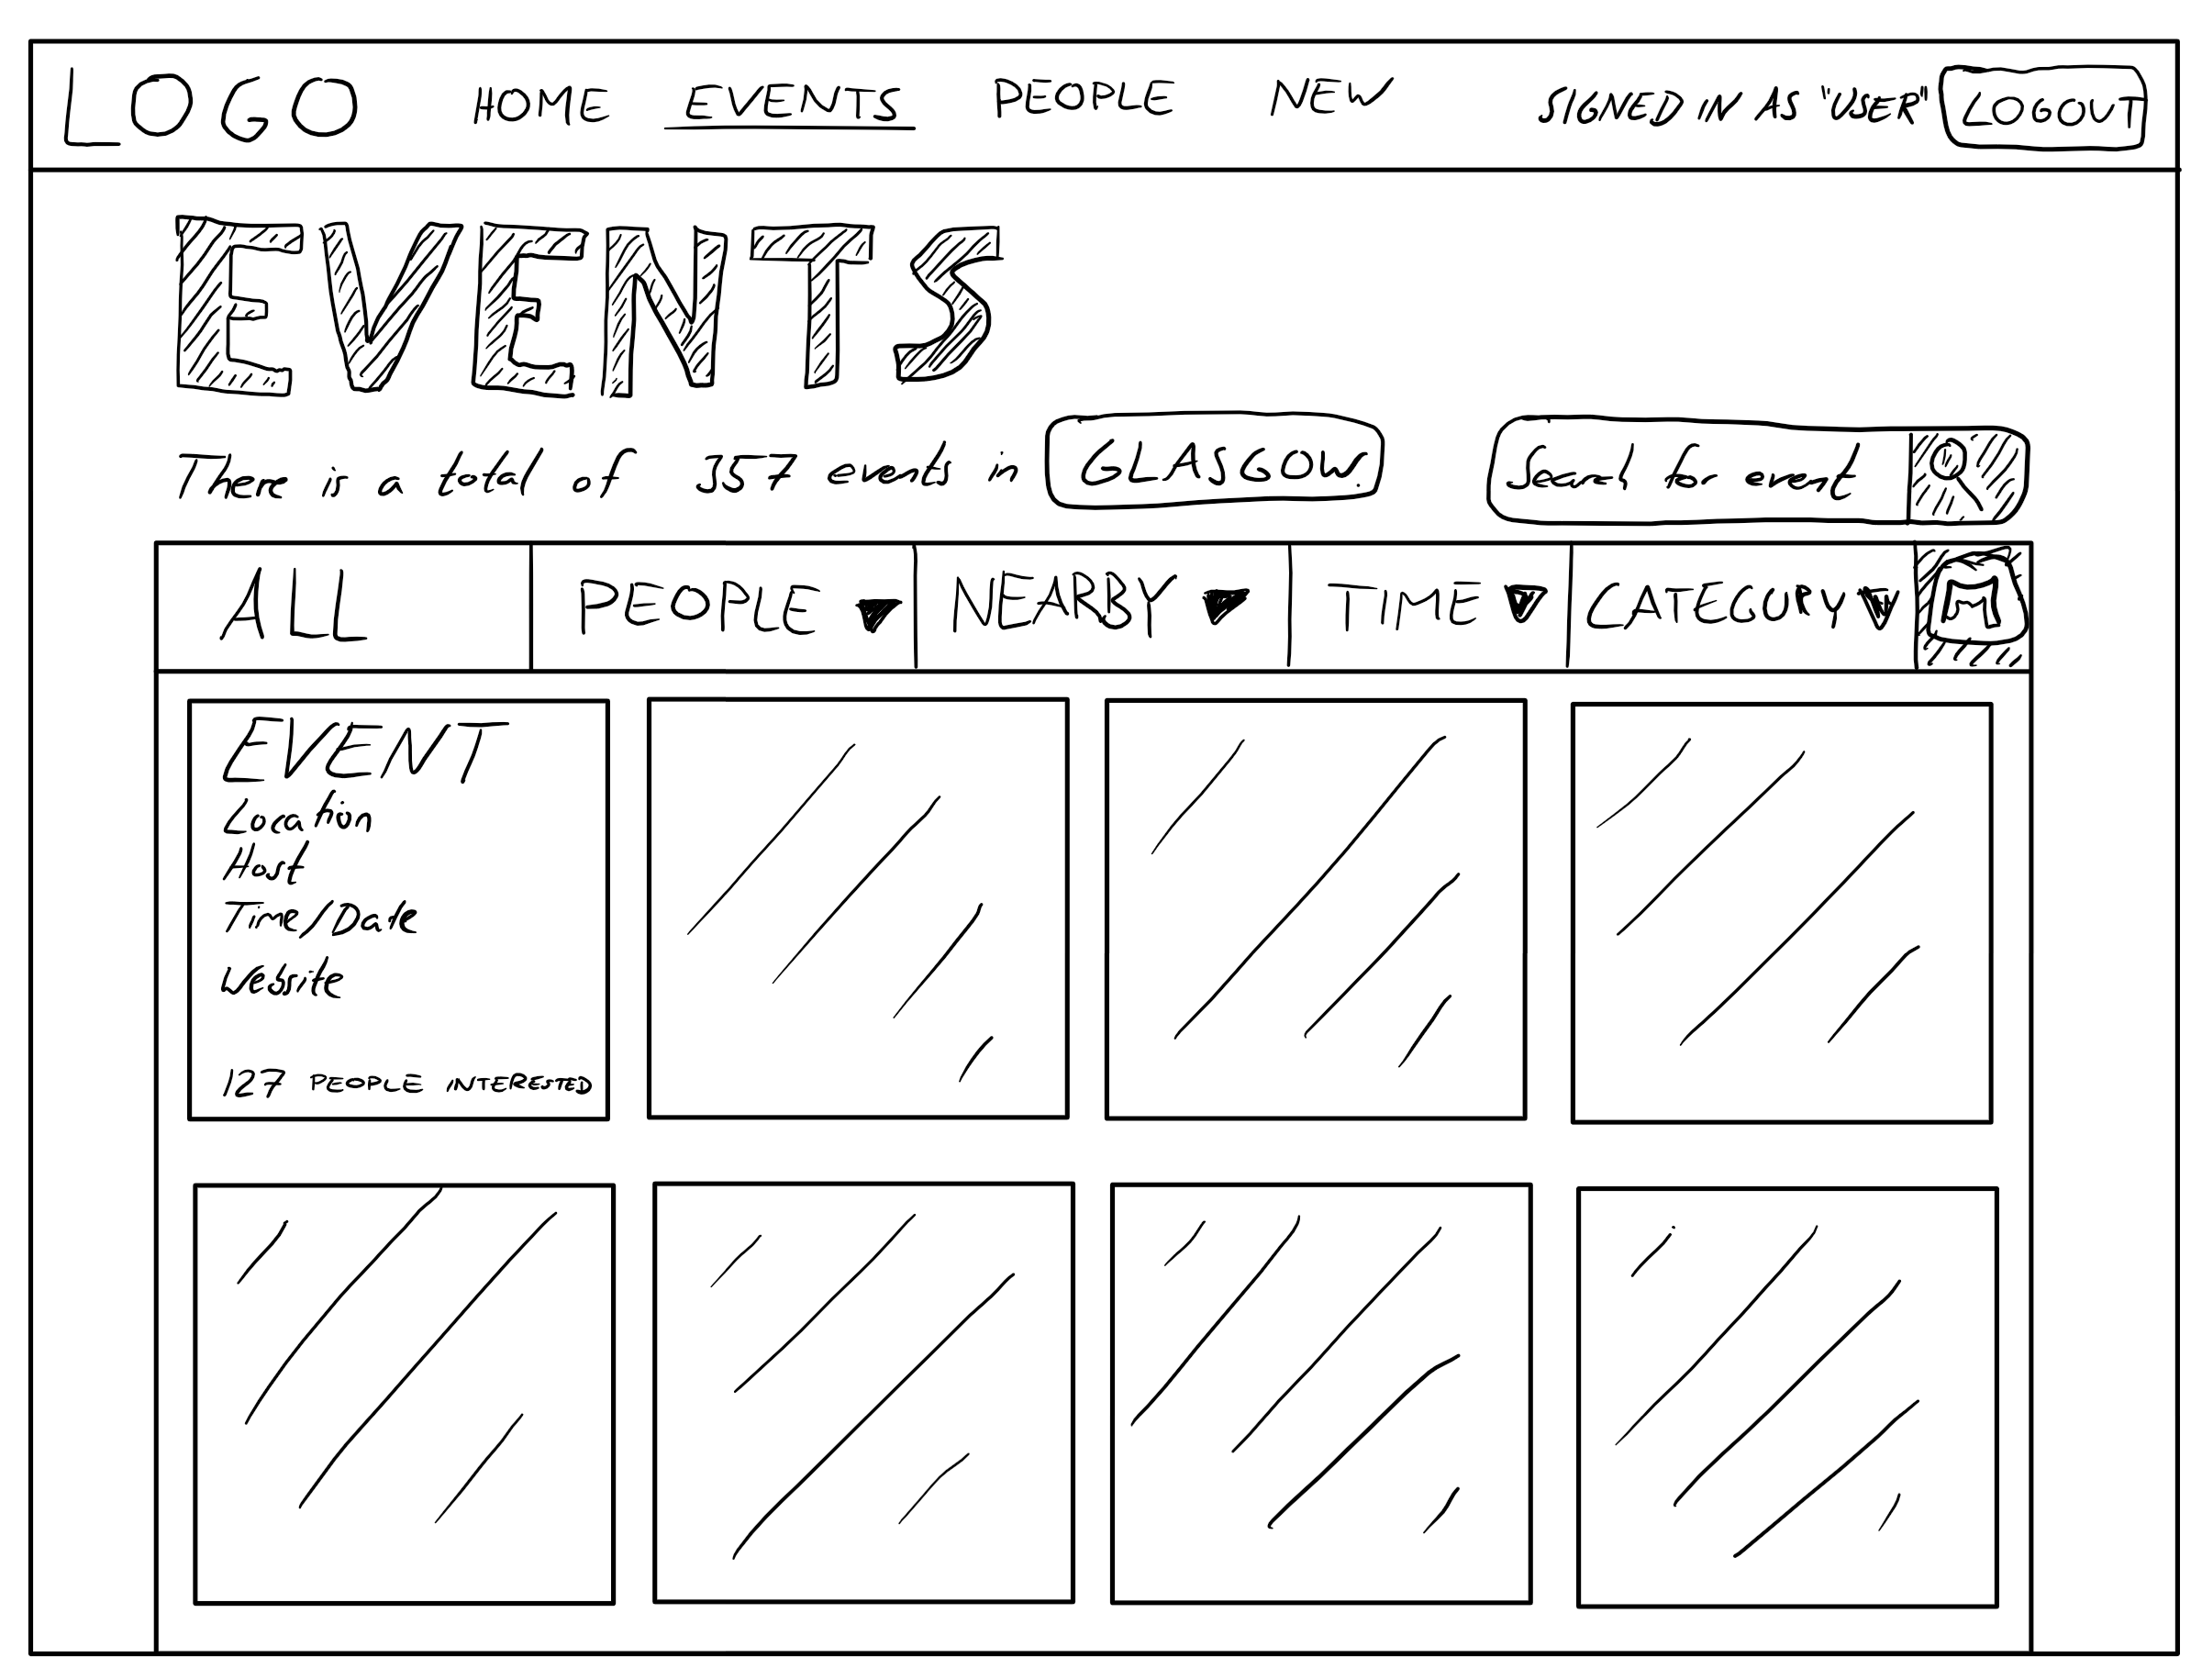 LOGO HOME EVENTS PEOPLE NEW SIGNED IN AS "USER" LOGOUT
EVENTS
There is a total of 357 events in GLASGOW. Search for event
ALL PEOPLE NEARBY TIME CATEGORY M
EVENT
Location
Host
Time/Date
Website
127 PEOPLE INTERESTED